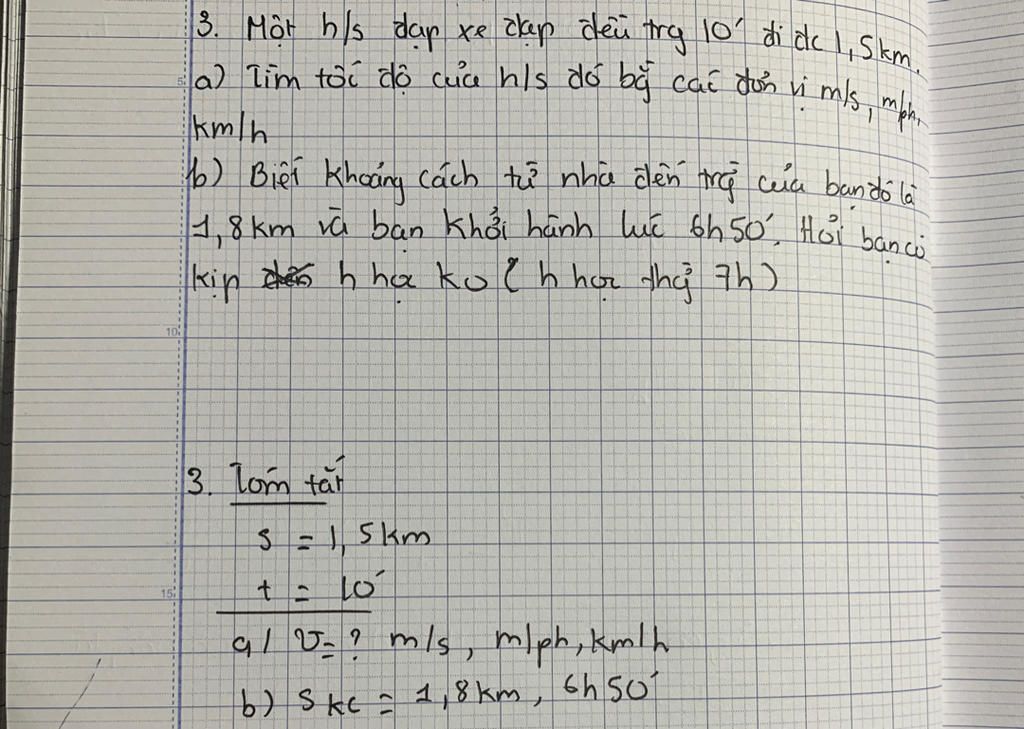 3. Một h/s đạp xe đạp đều trg 10' đi dc 1,5km.
a) Tìm tốc độ của h/s đó bg các đơn vị m/s, m/ph,
km/h
b) Biết khoảng cách từ nhà đến trg của bạn đó là
1,8km và bạn khởi hành lúc 6h50'. Hỏi bạn có
kịp h học ko (h học thg 7h)
10
3. Tóm tắt
s = 1,5km
t = 10'
15
a/ v=? m/s, m/ph, km/h
b) s kc = 1,8km, 6h50'